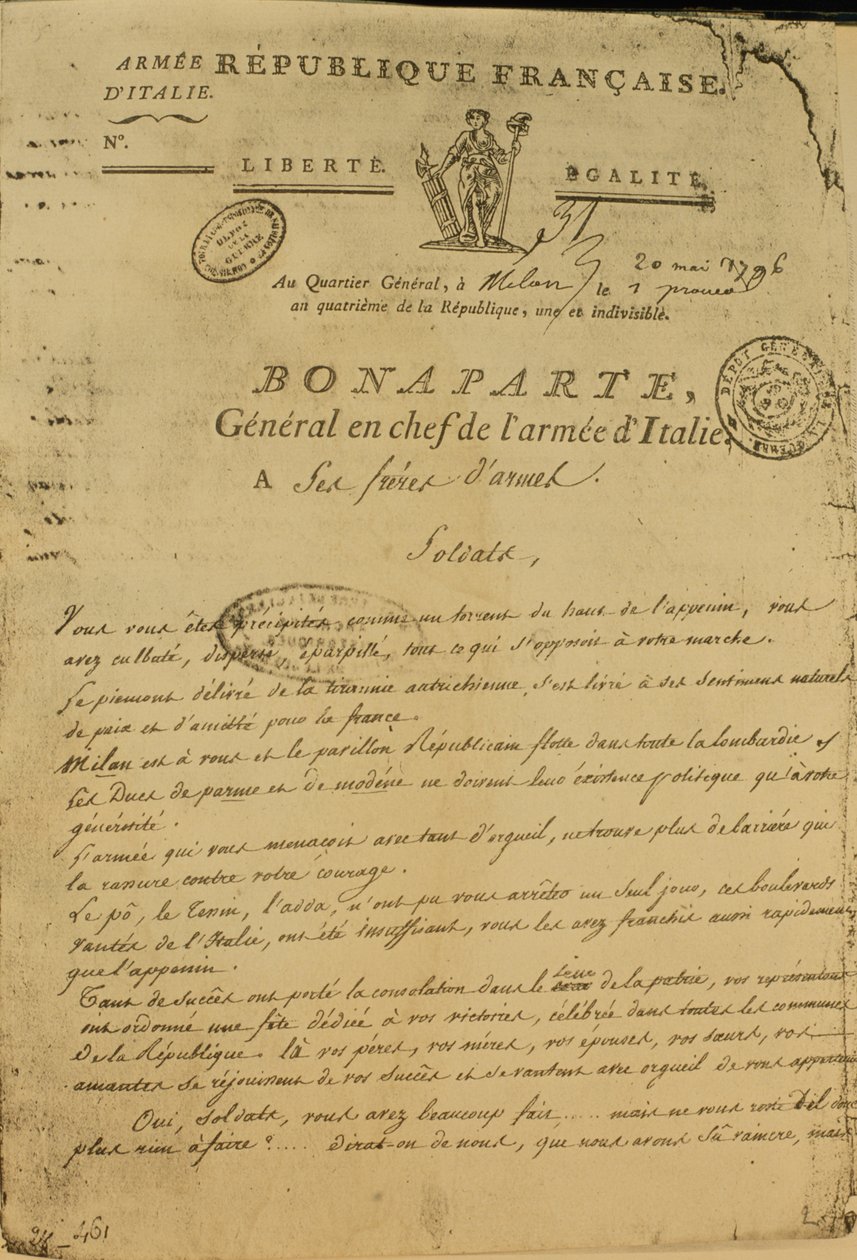 ARMÉE
D'ITALIE.
RÉPUBLIQUE FRANÇAISE.
Nº.
LIBERTÉ.
EGALITÉ.
DÉPOT
DE LA
GUERRE
31
20 mai 1796
Au Quartier Général, à Milan le 1 prairial
an quatrième de la République, une et indivisible.
DÉPOT GÉNÉRAL DE LA GUERRE
BONAPARTE,
Général en chef de l'armée d'Italie.
A Ses fréres d'armes.
Soldats,
Vous vous êtes précipités, comme un torrent du haut de l'appenin, vous
avez culbuté, dispersé, éparpillé, tout ce qui s'opposoit à votre marche.
Le piemont délivré de la tirannie autrichienne, s'est livré à ses sentimens naturels
de paix et d'amitié pour la france.
Milan est à vous et le pavillon Républicain flotte dans toute la lombardie
Les Ducs de parme et de modéne ne doivent leur éxistence politique qu'à votre
générosité.
L'armée qui vous menaçoit avec tant d'orgueil, ne trouve plus de barriére qui
la rassure contre votre courage.
Le pô, le Tesin, l'adda, n'ont pu vous arrêter un seul jour, ces boulevards
vantés de l'Italie, ont été insuffisant, vous les avez franchis aussi rapidement
que l'appenin.
Tant de succês ont porté la consolation dans le Sein de la patrie, vos représentans
ont ordonné une fête dédiée à vos victoires, célébrée dans toutes les communes
de la République. là vos péres, vos méres, vos épouses, vos sœurs, vos
amantes se réjouissent de vos succês et se vantent avec orgueil de vous appartenir
Oui, soldats, vous avez beaucoup fait ..... mais ne vous reste t'il donc
plus rien à faire ? .... dirat-on de nous, que nous avons sû vaincre, mais
461